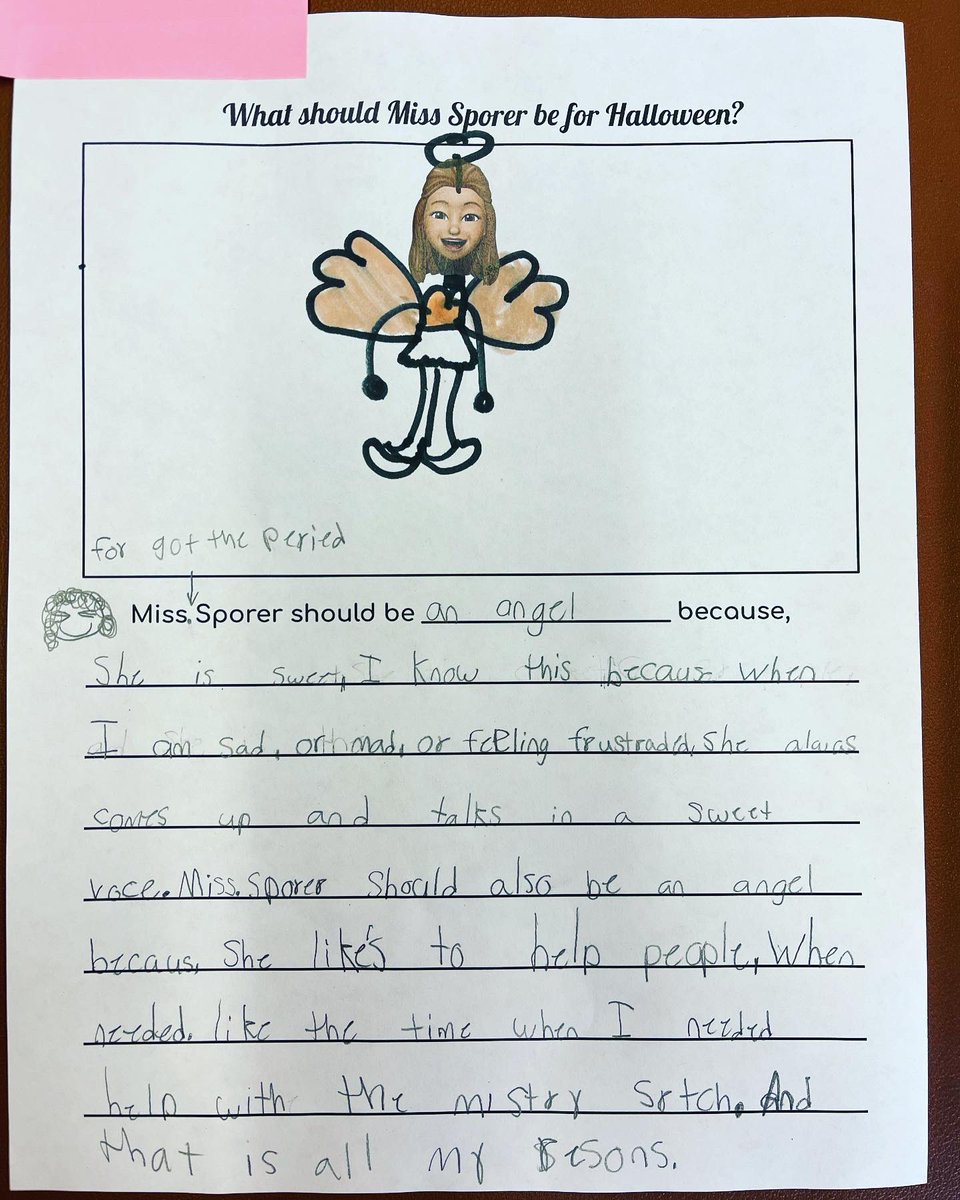 What should Miss Sporer be for Halloween?
for got the peried
Miss. Sporer should be an angel because,
She is sweet, I know this becaus when
I am sad, or mad, or feeling frustraded, she alaias
comes up and talks in a sweet
voce. Miss. Sporer should also be an angel
becaus, She like's to help people, When
needed. like the time when I needed
help with the mistry Sctch. And
that is all my resons.